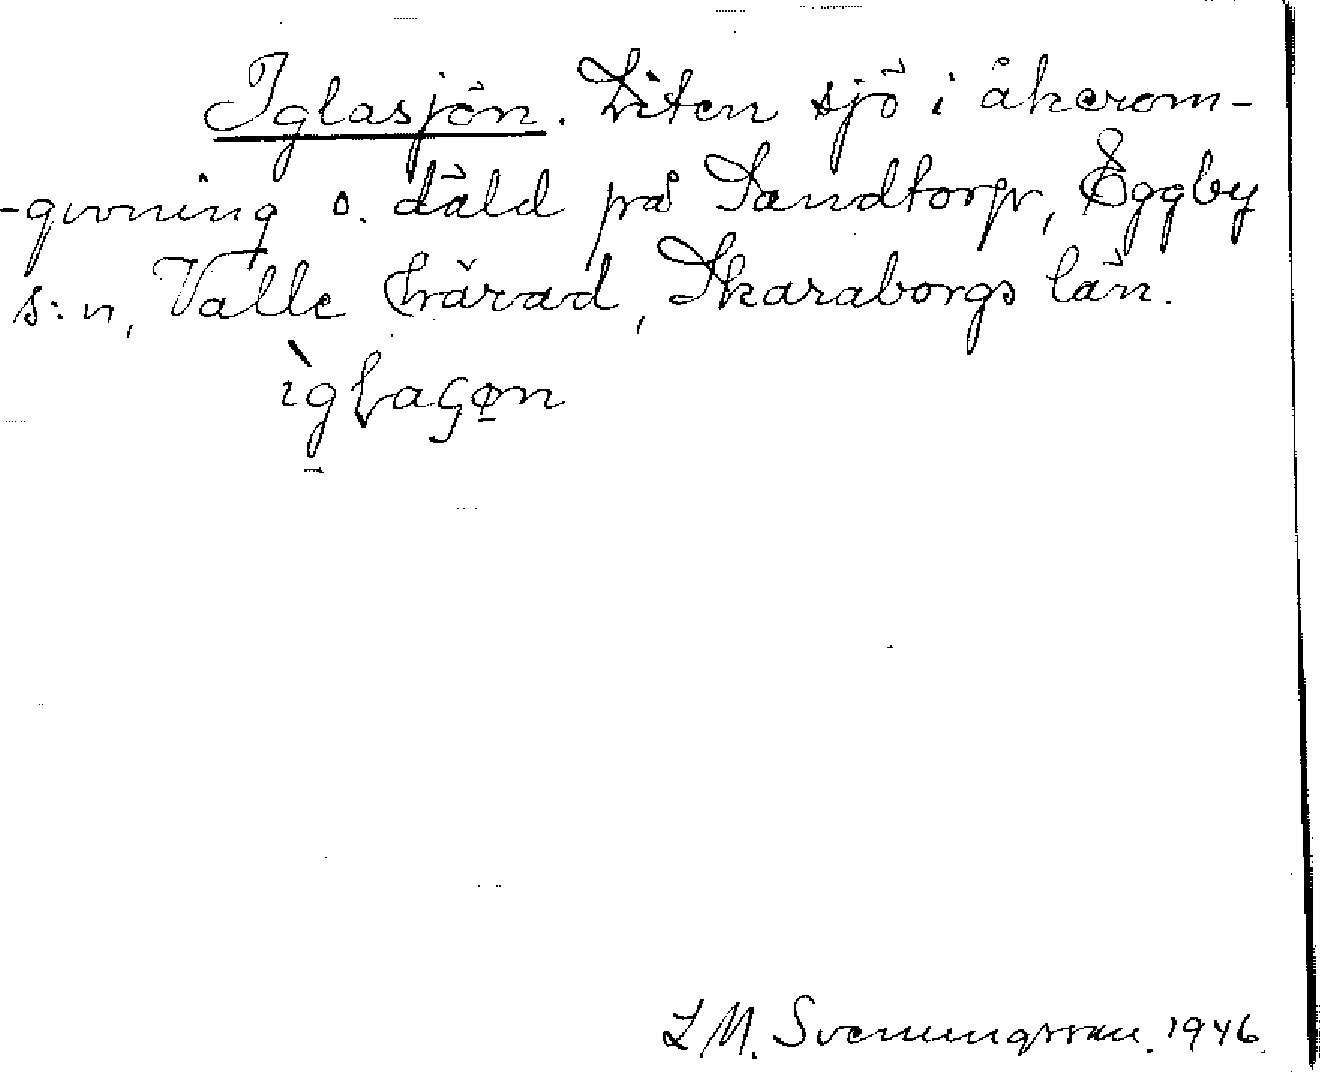 Iglasjön. Liten sjö i åkerom-
-givning o. däld på Sandtorp, Eggby
s:n, Valle härad, Skaraborgs län.
ìglaçøn
L M. Svenungsson. 1946.